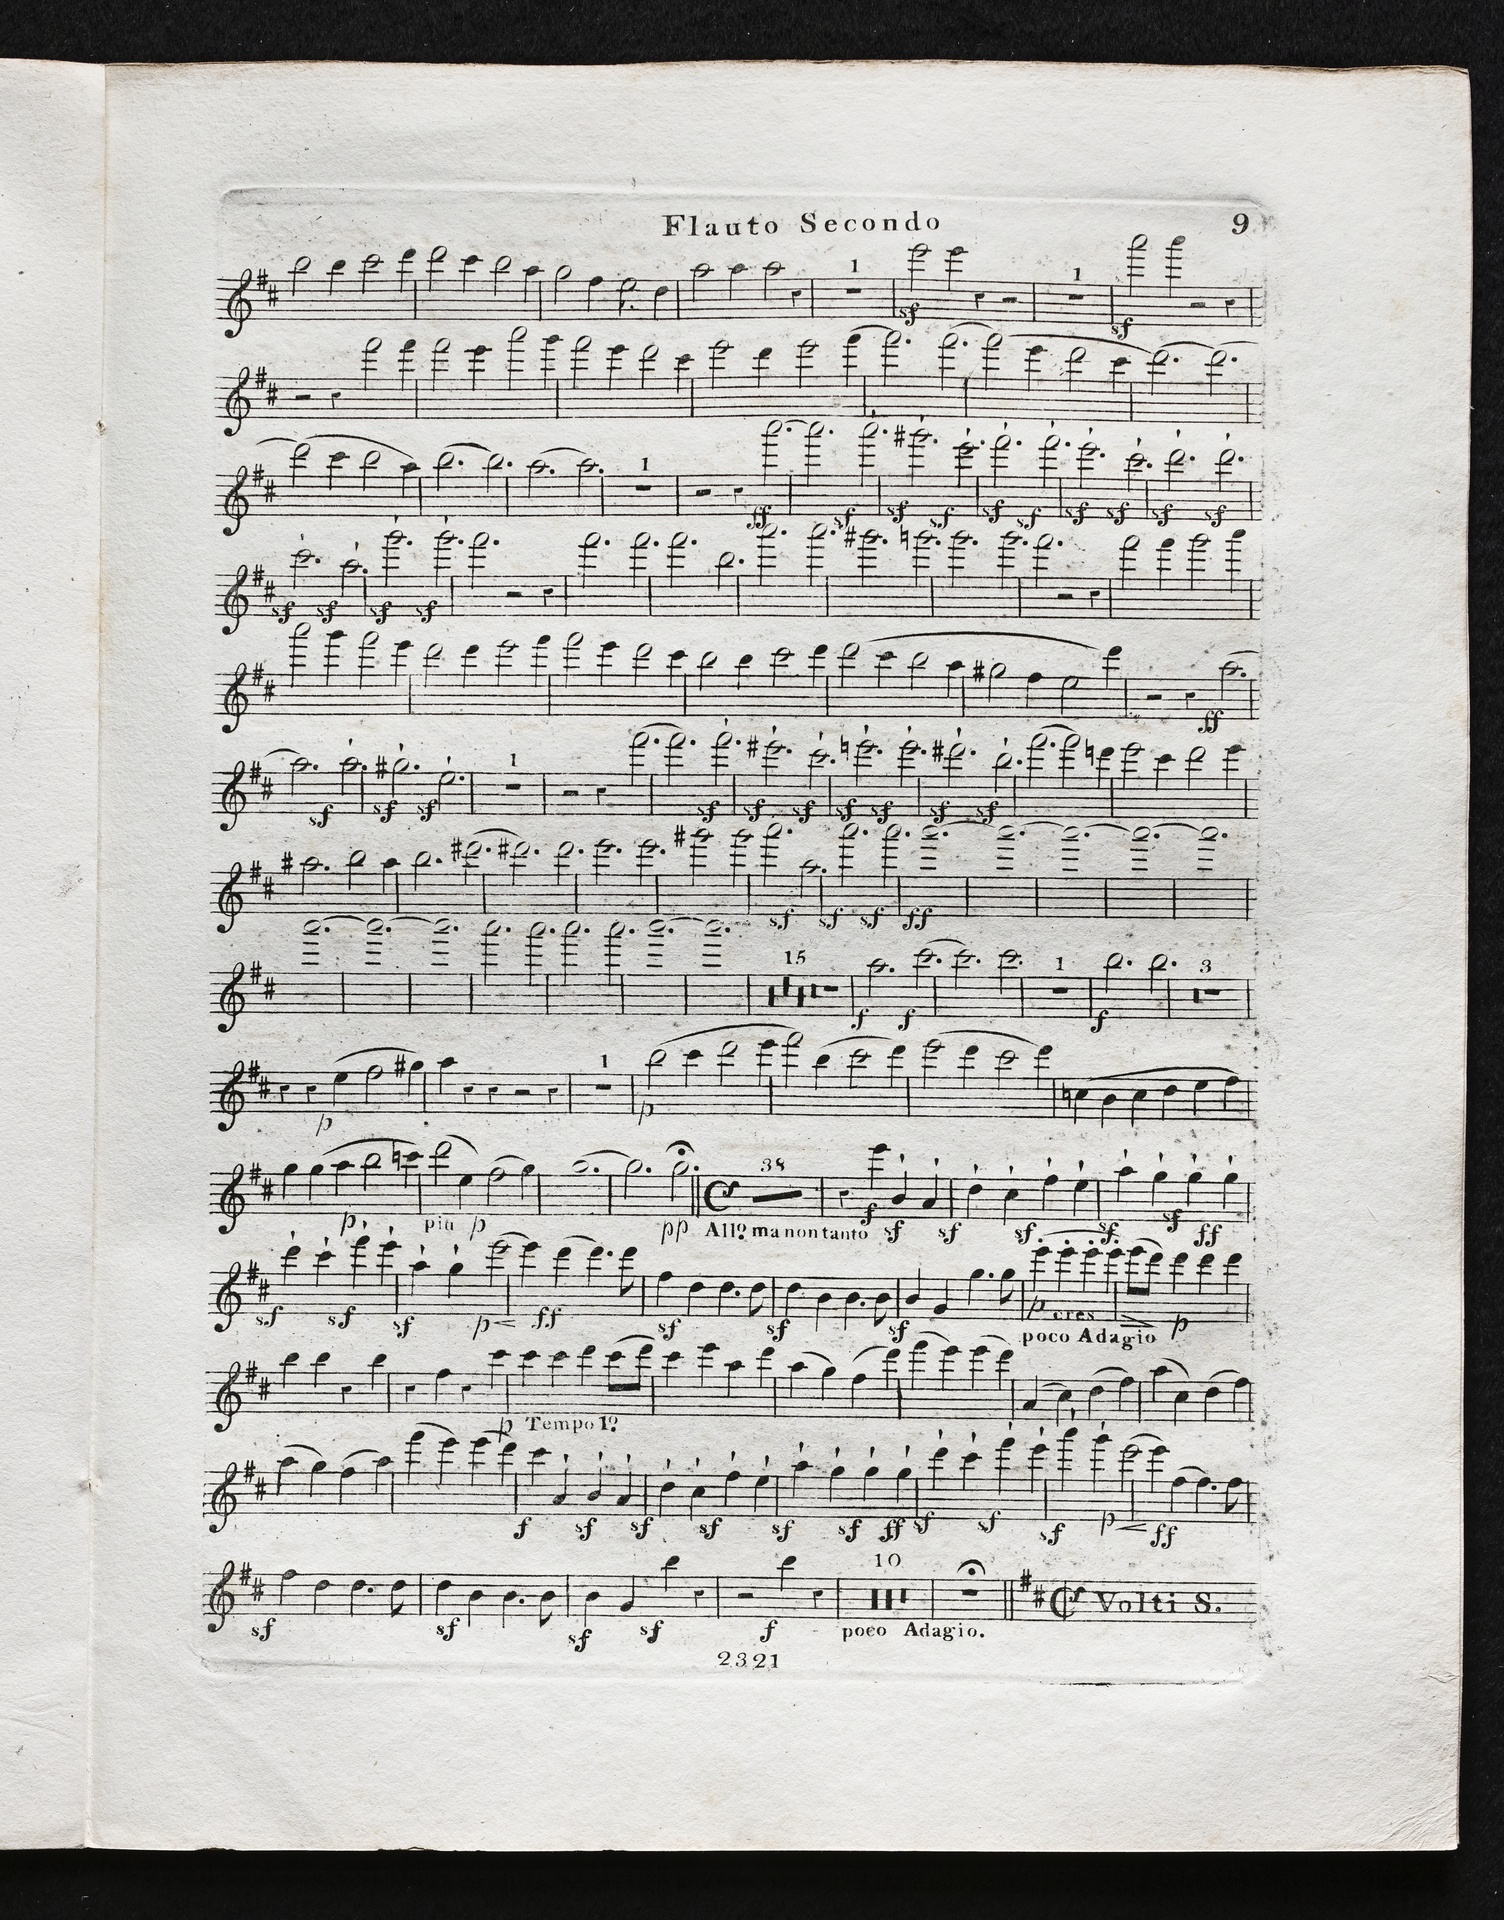 Flauto Secondo 9
1 1
sf sf
1
ff sf sf sf sf sf sf sf sf sf
sf sf sf sf
ff
1
sf sf sf sf sf sf sf sf sf sf
sf sf sf ff
15 1 3
f f f
1
p p
38
p. più p pp All? ma non tanto f sf sf sf. sf. sf ff
sf sf sf p ff sf sf sf p cres p
poco Adagio
p Tempo 1?
f sf sf sf sf sf ff sf sf sf p ff
10
Volti S.
sf sf sf sf f poco Adagio.
2321